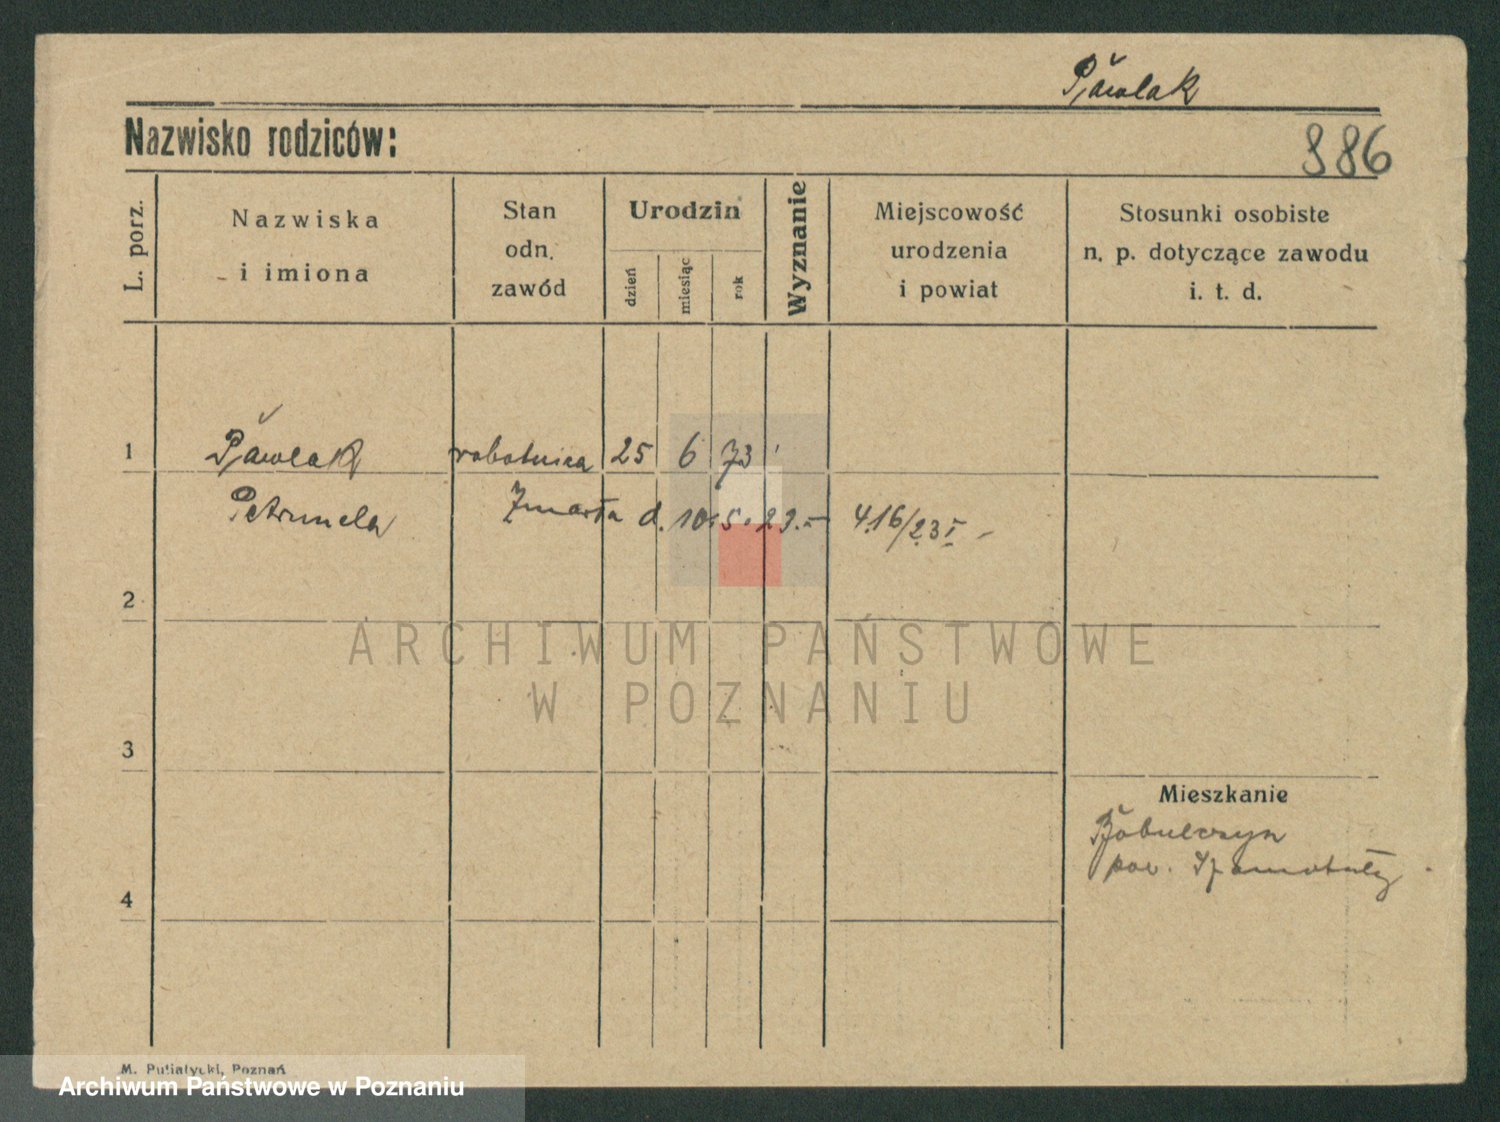 Pawlak
Nazwisko rodziców:
886
L. porz.
Nazwiska
i imiona
Stan
odn.
zawód
Urodzin
dzień
miesiąc
rok
Wyznanie
Miejscowość
urodzenia
i powiat
Stosunki osobiste
n. p. dotyczące zawodu
i. t. d.
1 Pawlak robotnica 25 6 73
Petrunela Zmarła d. 10.5.23.– 416/23 I –
2
ARCHIWUM PAŃSTWOWE
W POZNANIU
3
Mieszkanie
Bobulczyn
pow. Szamotuły
4
M. Putiatycki, Poznań
Archiwum Państwowe w Poznaniu